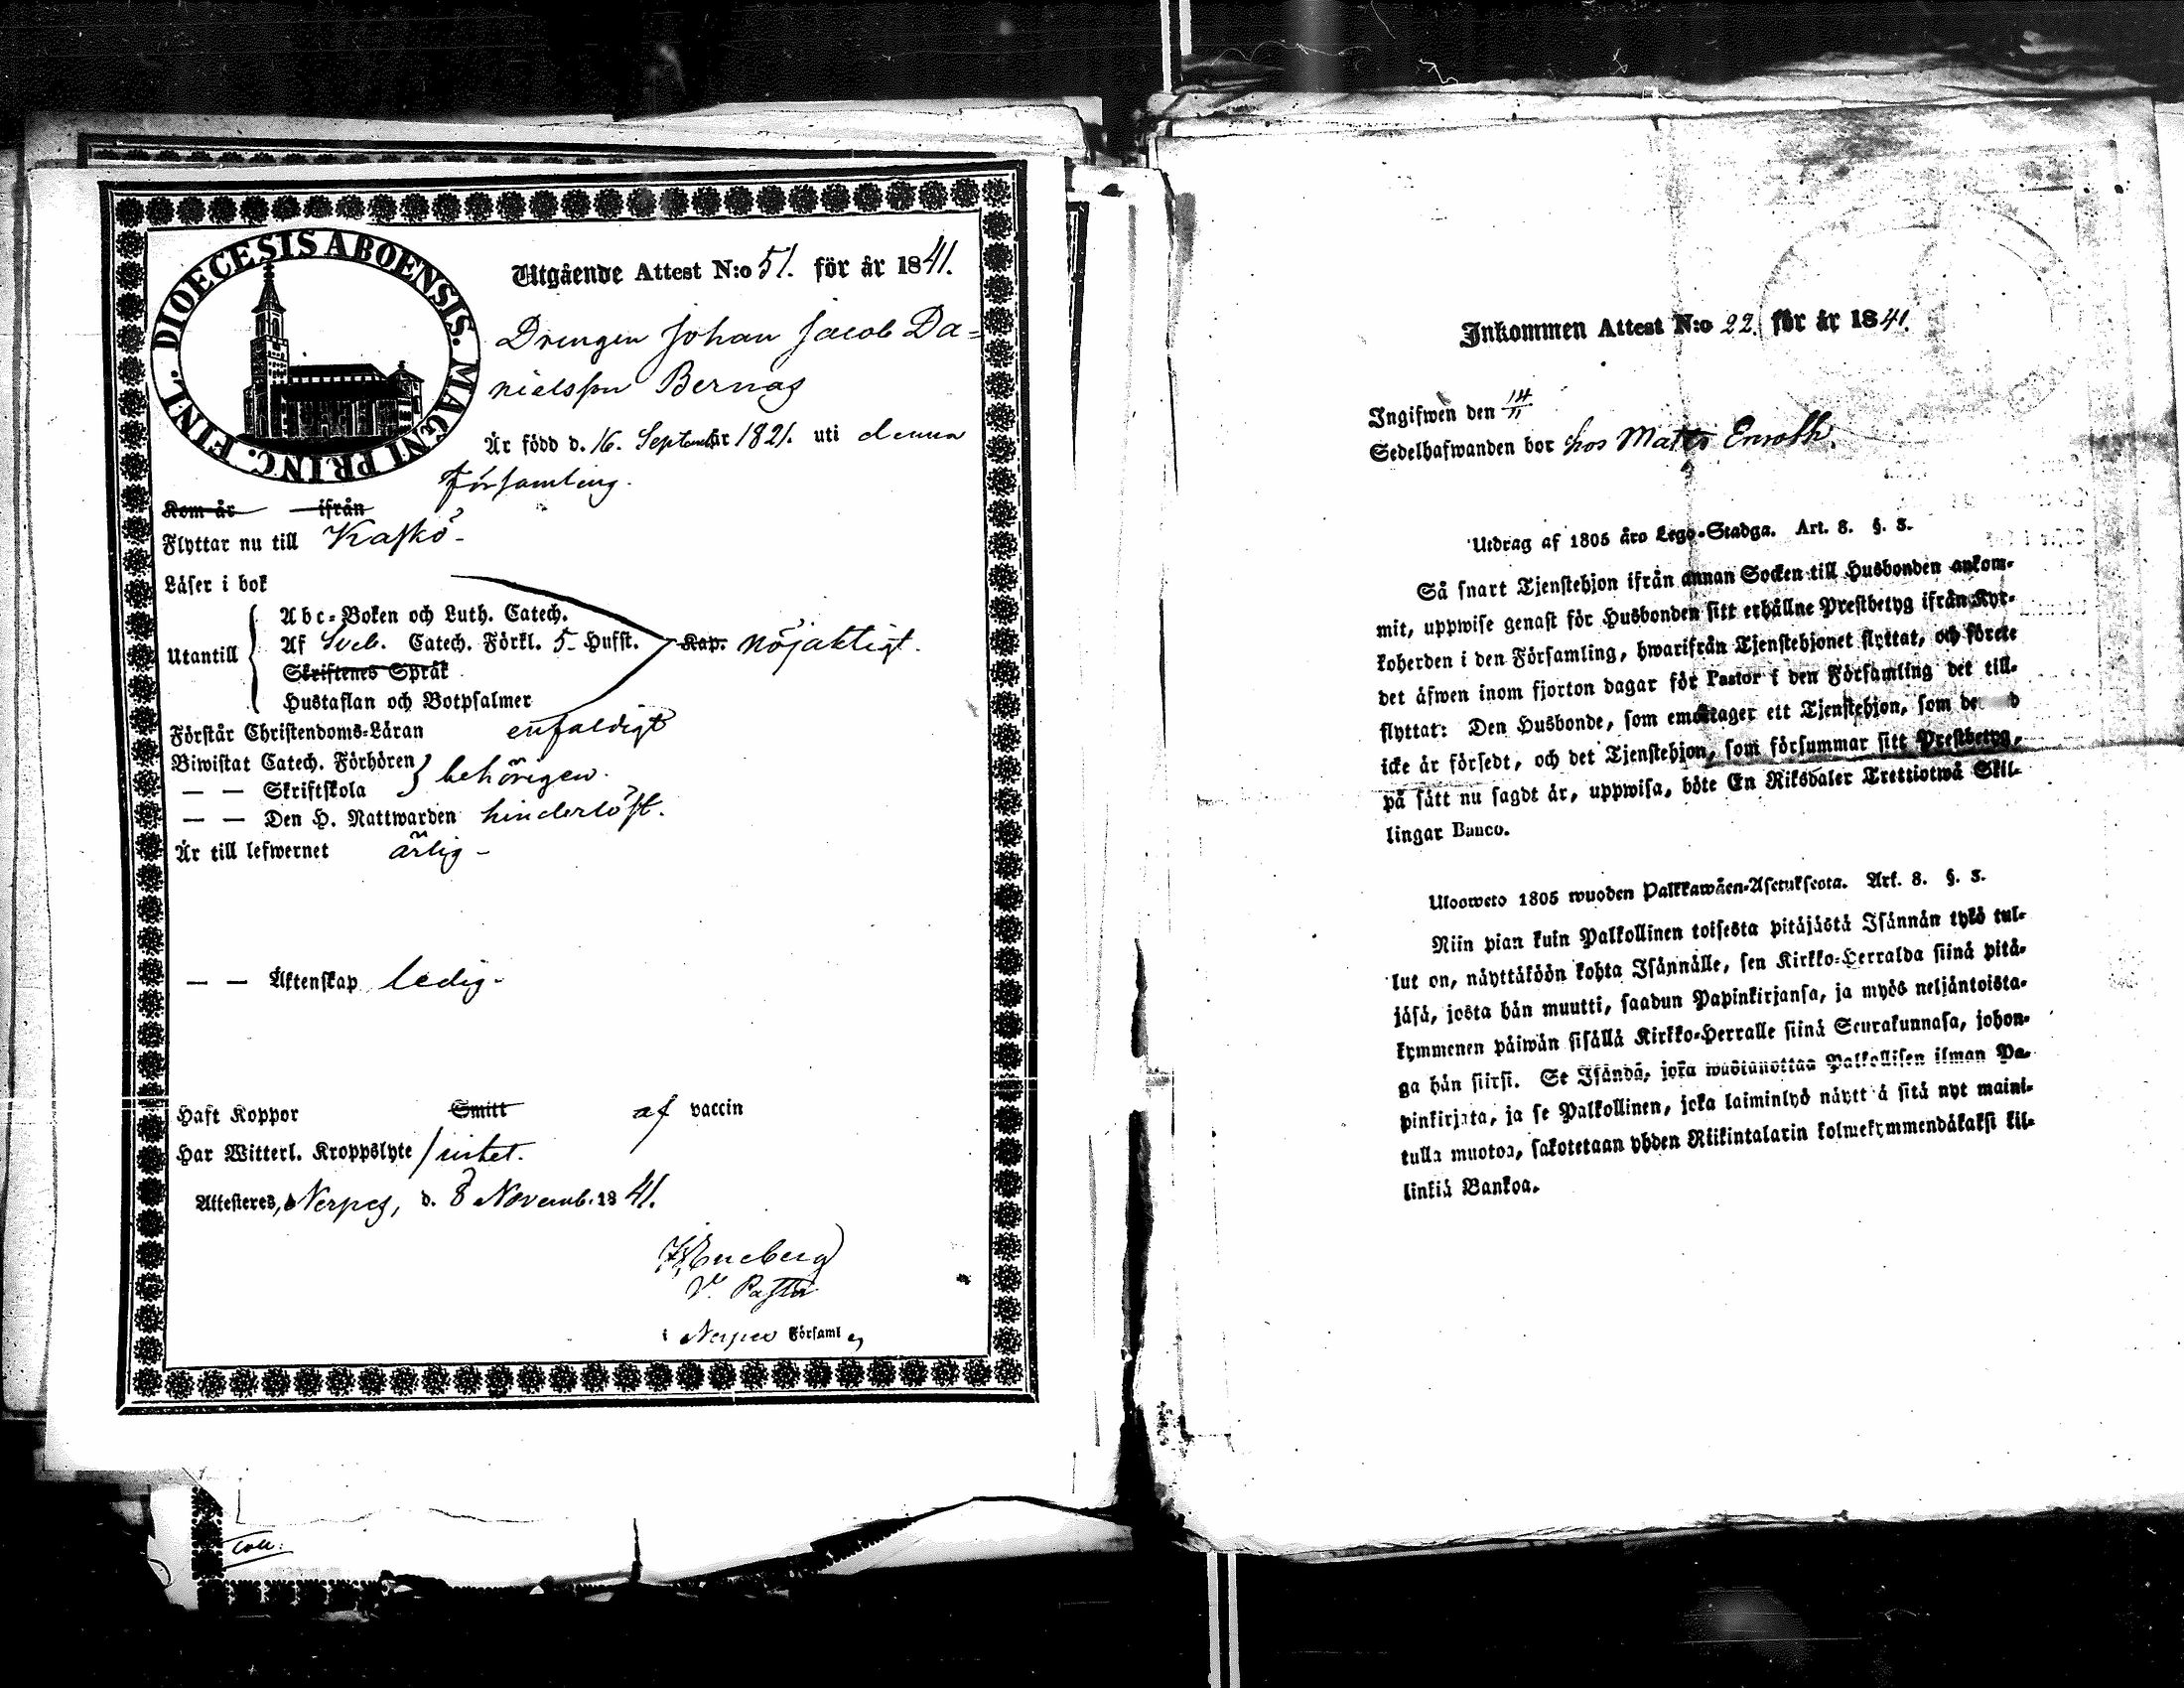 DIOECESIS ABOENSIS. MAGNI PRINC. FINL.
Utgående Attest N:o 51. för år 1841.
Drengen Johan Jacob Da=
nielsson Bernas
Är född d. 16. September 1821. uti denna
Församling.
Kom år ifrån
Flyttar nu till Kaskö
Läser i bok
Abc-Boken och Luth. Catech.
Utantill Af Sveb. Catech. Förkl. 5 Hufst. Kap. nöjaktigt.
Skriftenes Språk
Hustaflan och Botpsalmer
Förstår Christendoms-Läran enfaldigt
Biwistat Catech. Förhören
— — Skriftskola behörigen.
— — Den H. Nattwarden hinderlöst.
Är till lefwernet ärlig -
— — Äktenskap ledig -
Haft Koppor Smitt af vaccin
Har Witterl. Kroppslyte intet.
Attesteres, Nerpes, d. 8 Novemb. 1841.
V. Pastor
i Nerpes Församl
Coll:
Inkommen Attest N:o 22. för år 1841.
Ingifwen den 14/11
Sedelhafwanden bor hos Matts Enroth.
Utdrag af 1805 års Lego-Stadga. Art. 8. §. 3.
Så snart Tjenstehjon ifrån annan Socken till Husbonden ankom-
mit, uppwise genast för Husbonden sitt erhållne Prestbetyg ifrån Kyr-
koherden i den Församling, hwarifrån Tjenstehjonet flyttat, och förete
det äfwen inom fjorton dagar för Pastor i den Församling det till-
flyttat: Den Husbonde, som emottager ett Tjenstehjon, som
icke är försedt, och det Tjenstehjon, som försummar sitt Prestbetyg,
på sätt nu sagdt är, uppwisa, böte En Riksdaler Trettiotwå Skil-
lingar Banco.
Ulosweto 1805 wuoden Palkkawäen-Asetuksesta. Art. 8. §. 3.
Niin pian kuin Palkollinen toisesta pitäjästä Isännän tykö tul-
lut on, näyttäköön kohta Isännälle, sen Kirkko-Herralda siinä pitä-
jäsä, josta hän muutti, saadun Papinkirjansa, ja myös neljäntoista-
kymmenen päiwän sisällä Kirkko-Herralle siinä Seurakunnasa, johon-
ga hän siirsi. Se Isändä, joka wastanottaa Palkollisen ilman Pa-
pinkirjata, ja se Palkollinen, joka laiminlyö näyttä sitä nyt maini-
tulla muotoa, sakotetaan yhden Riikintalarin kolmekymmendäkaksi kil-
linkiä Bankoa.